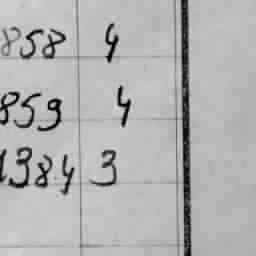 858 4
859 4
1384 3